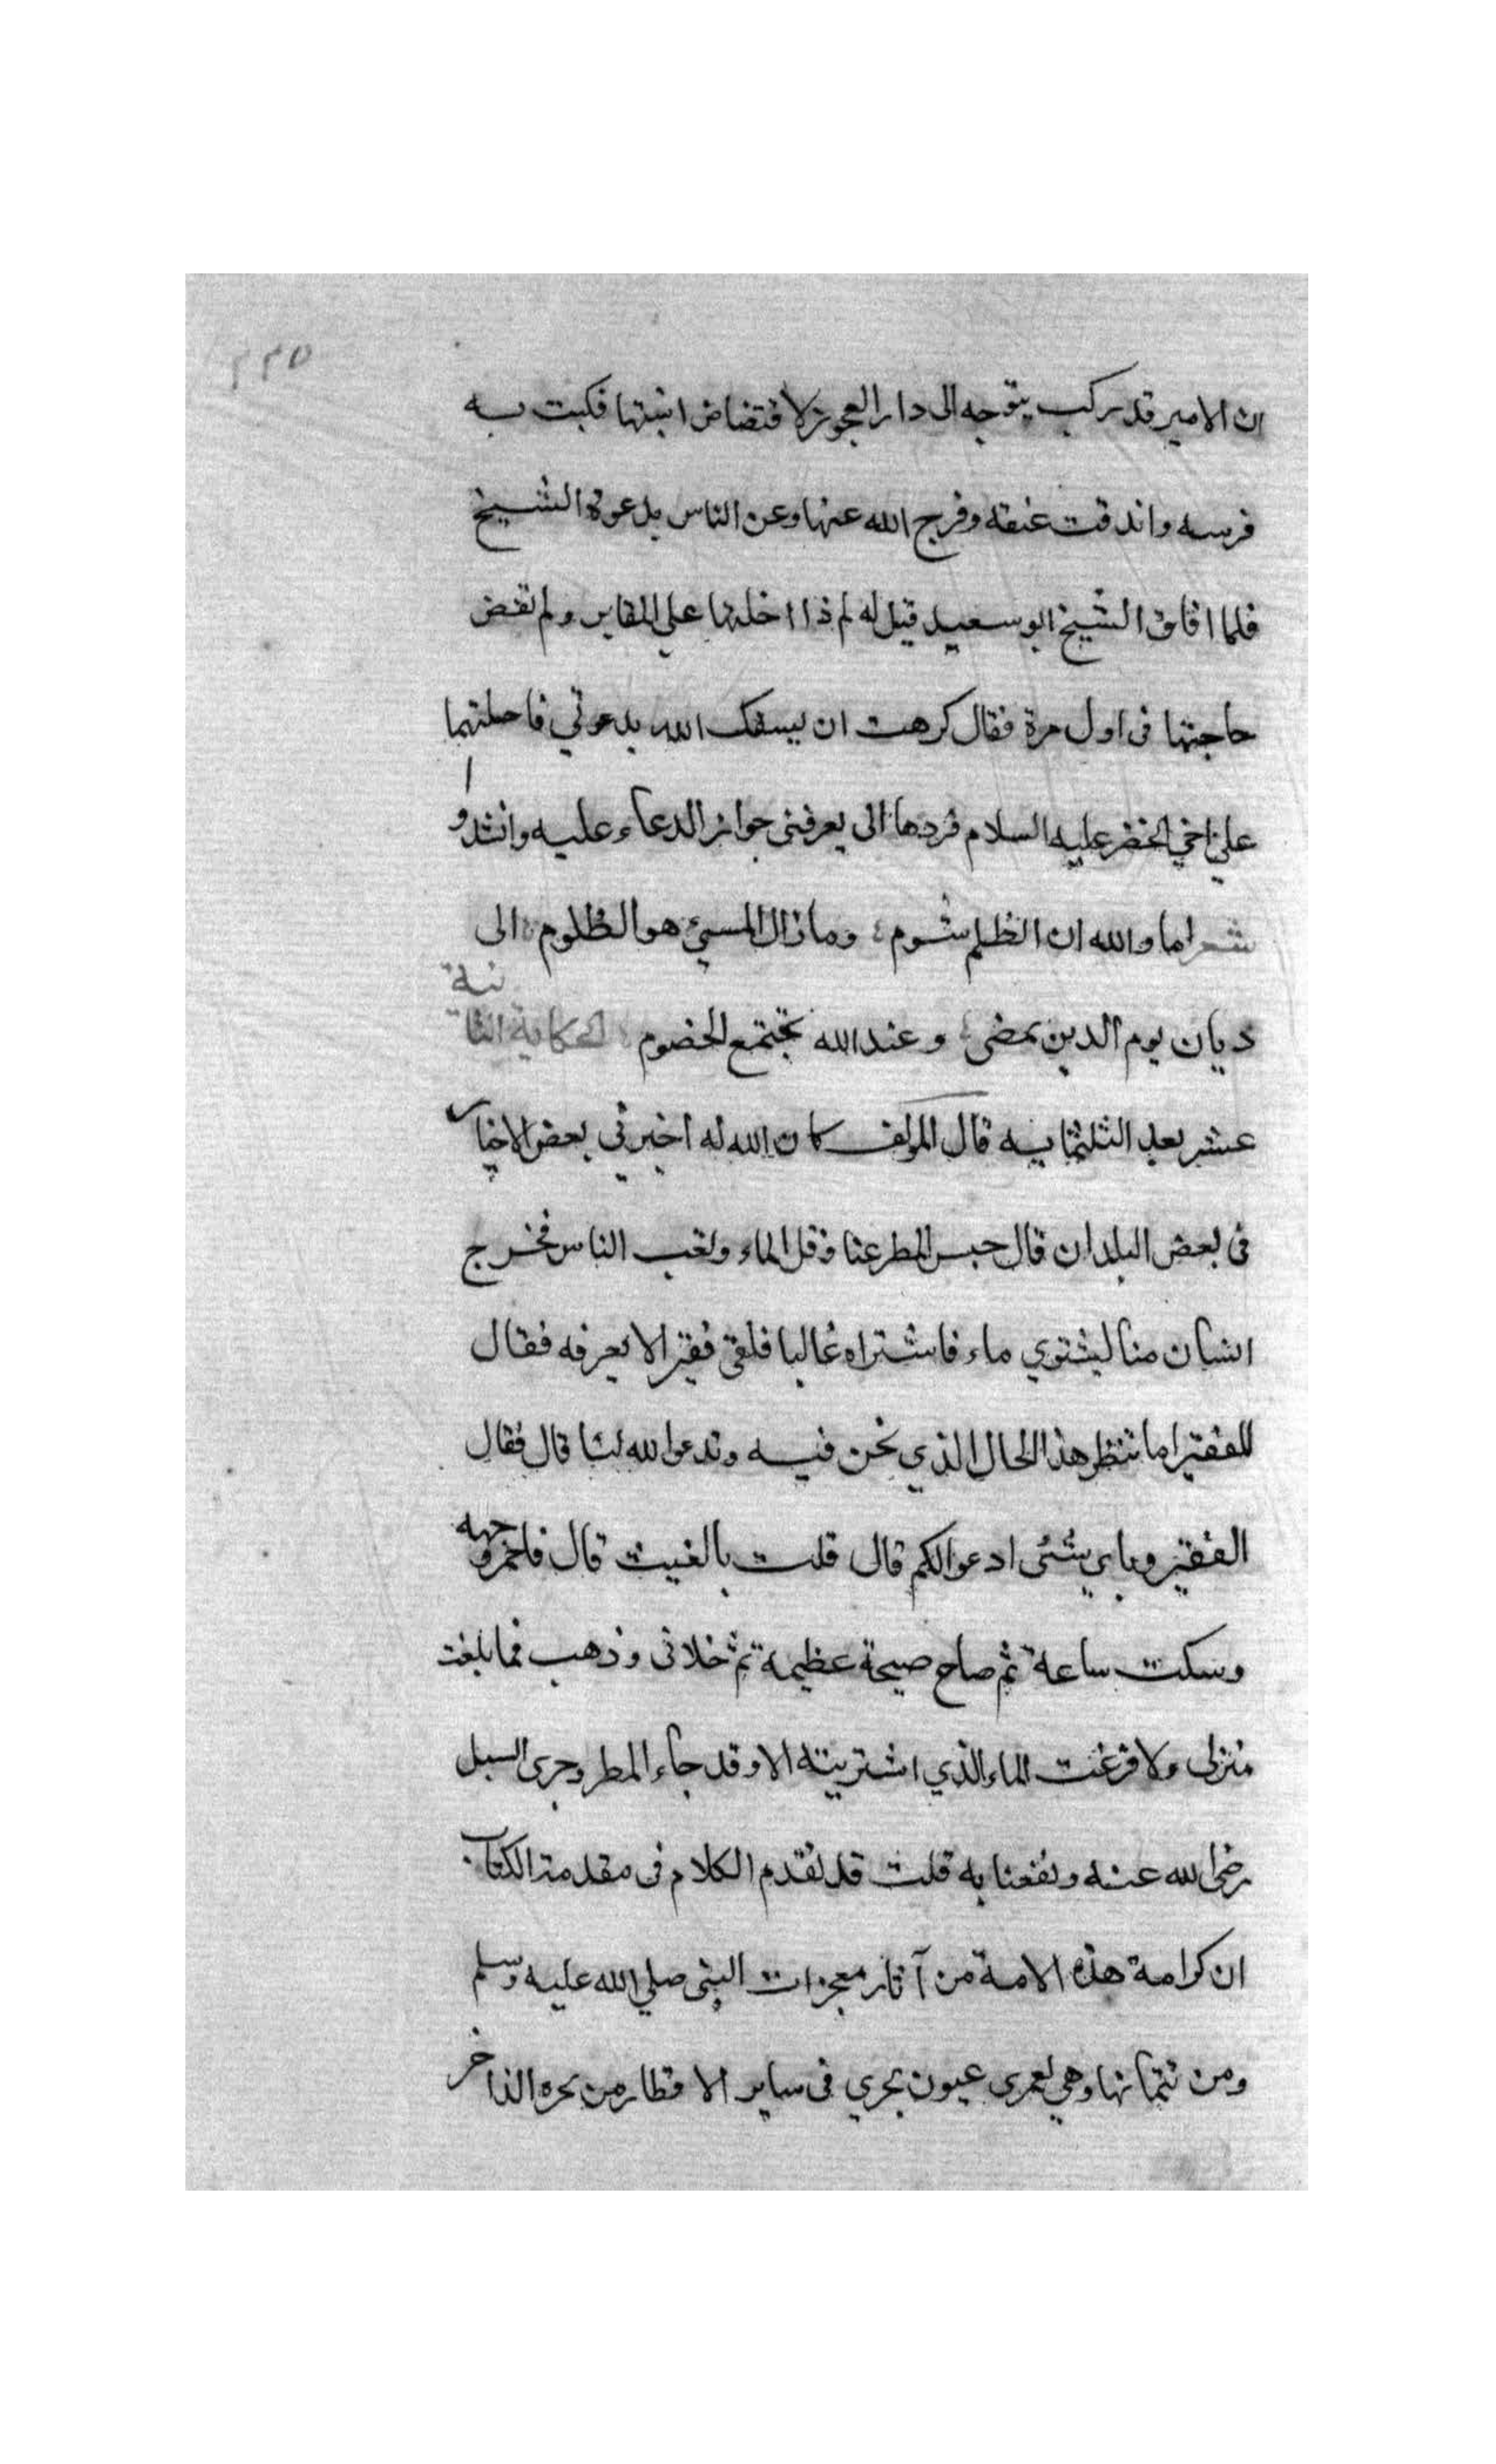 ٢٢٥
ان الامير قد ركب يتوجه الى دار العجوز لافتضاض ابنتها فكبت به
فرسه واندقت عنقه وفرج الله عنها وعن الناس بدعوة الشيخ
فلما افاق الشيخ ابو سعيد قيل له لم ذا احلتها على المقابر ولم تقض
حاجتها فى اول مرة فقال كرهت ان يسفك الله بدعوتي فاحلتهما
على اخي الخضر عليه السلام فردها الى يعرفنى جواز الدعاء عليه وانشدوا
شعر اما والله ان الظلم شوم وما زال المسئ هو الظلوم الى
ديان يوم الدين نمضى وعند الله تجتمع الخصوم الحكاية الثانية
عشر بعد الثلثمايه قال المولف كان الله له اخبرني بعض الاخيار
فى بعض البلدان قال حبس المطر عنا وقل الماء وتعب الناس فخرج
انسان منا ليشتري ماء فاشتراه غاليا فلقى فقيرا لا يعرفه فقال
للفقير اما تنظر هذا الحال الذي نحن فيه وتدعوا لله لنا قال فقال
الفقير وباي شئ ادعوا لكم قال قلت بالغيث قال فاحمر وجهه
وسكت ساعة ثم صاح صيحة عظيمة ثم خلانى وذهب فما بلغت
منزلى ولا فرغت الماء الذي اشتريته الا وقد جاء المطر وجرى السيل
رضى الله عنه ونفعنا به قلت قد تقدم الكلام فى مقدمة الكتاب
ان كرامة هذه الامة من آثار معجزات النبى صلى الله عليه وسلم
ومن تتماتها وهي لعمرى عيون تجري فى ساير الاقطار من بحره الذاخر